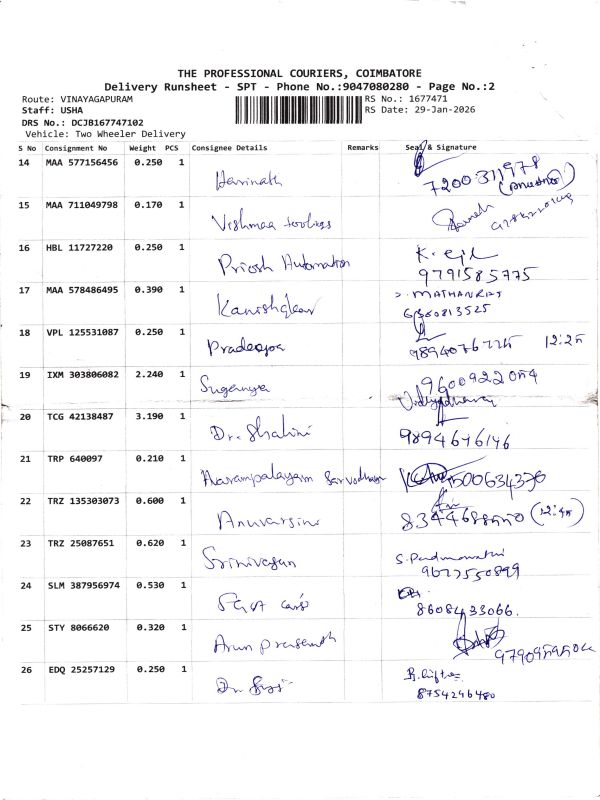 THE PROFESSIONAL COURIERS, COIMBATORE
Delivery Runsheet - SPT - Phone No.:9047080280 - Page No.:2
Route: VINAYAGAPURAM
RS No.: 1677471
Staff: USHA
RS Date: 29-Jan-2026
DRS No.: DCJB167747102
Vehicle: Two Wheeler Delivery
S No Consignment No Weight PCS Consignee Details Remarks Seal & Signature
14 MAA 577156456 0.250 1 Harinath 7200311978
15 MAA 711049798 0.170 1 Vishmaa toolings
16 HBL 11727220 0.250 1 Priosh Automation 9791585775
17 MAA 578486495 0.390 1 MATHANRAJ
6380813525
18 VPL 125531087 0.250 1 12:25
19 IXM 303806082 2.240 1 Suganya 9600922054
20 TCG 42138487 3.190 1 Dr. Shalini 9894646146
21 TRP 640097 0.210 1
22 TRZ 135303073 0.600 1
23 TRZ 25087651 0.620 1 Srinivasan S. Padmavathi
9677550899
24 SLM 387956974 0.530 1 8608433066.
25 STY 8066620 0.320 1 Arun prasanth
26 EDQ 25257129 0.250 1 8754246480